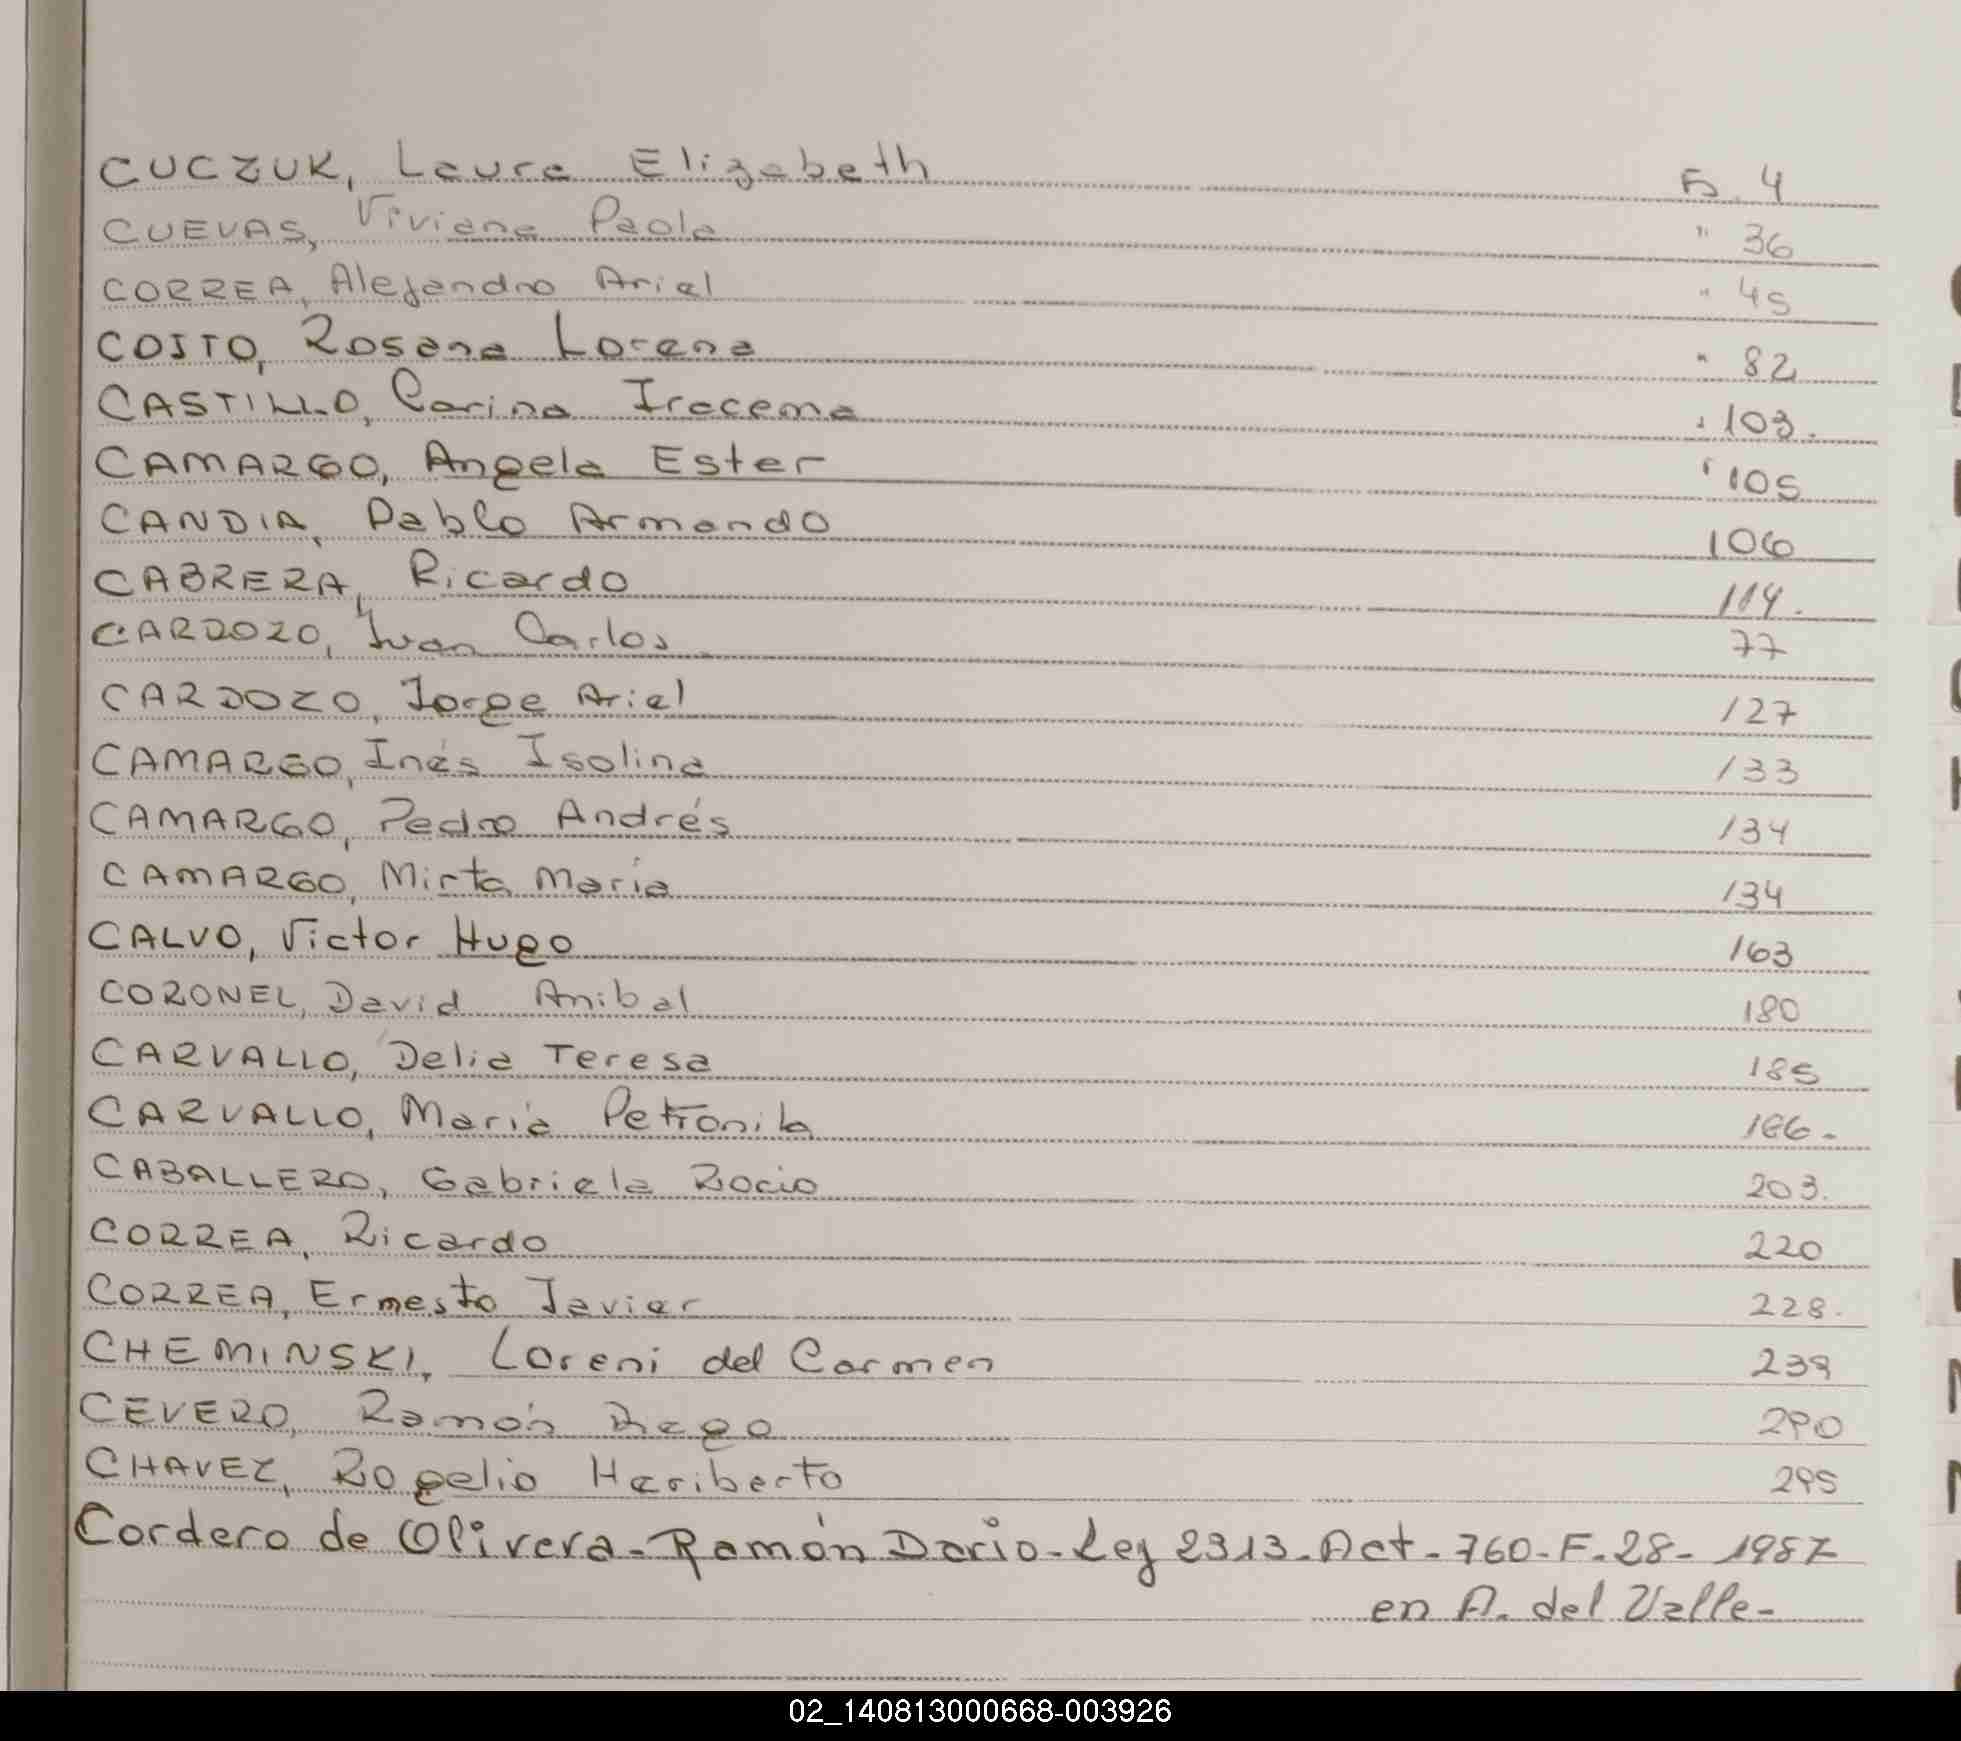 CUCZUK, Laura Elizabeth Fs. 4
CUEVAS, Viviana Paola " 36
CORREA, Alejandro Ariel " 45
COITO, Rosana Lorena " 82
CASTILLO, Carina Iracema " 103.
CAMARGO, Angela Ester " 105
CANDIA, Pablo Armando 106
CABRERA, Ricardo 114.
CARDOZO, Juan Carlos 77
CARDOZO, Jorge Ariel 127
CAMARGO, Inés Isolina 133
CAMARGO, Pedro Andrés 134
CAMARGO, Mirta María 134
CALVO, Victor Hugo 163
CORONEL, David Anibal 180
CARVALLO, Delia Teresa 185
CARVALLO, María Petronila 186.
CABALLERO, Gabriela Rocio 203.
CORREA, Ricardo 220
CORREA, Ernesto Javier 228.
CHEMINSKI, Loreni del Carmen 239
CEVERO, Ramón 290
CHAVEZ, Rogelio Heriberto 295
Cordero de Olivera-Ramón Dario-Ley 2313-Act-760-F.28-1987
en A. del Valle-
02_140813000668-003926